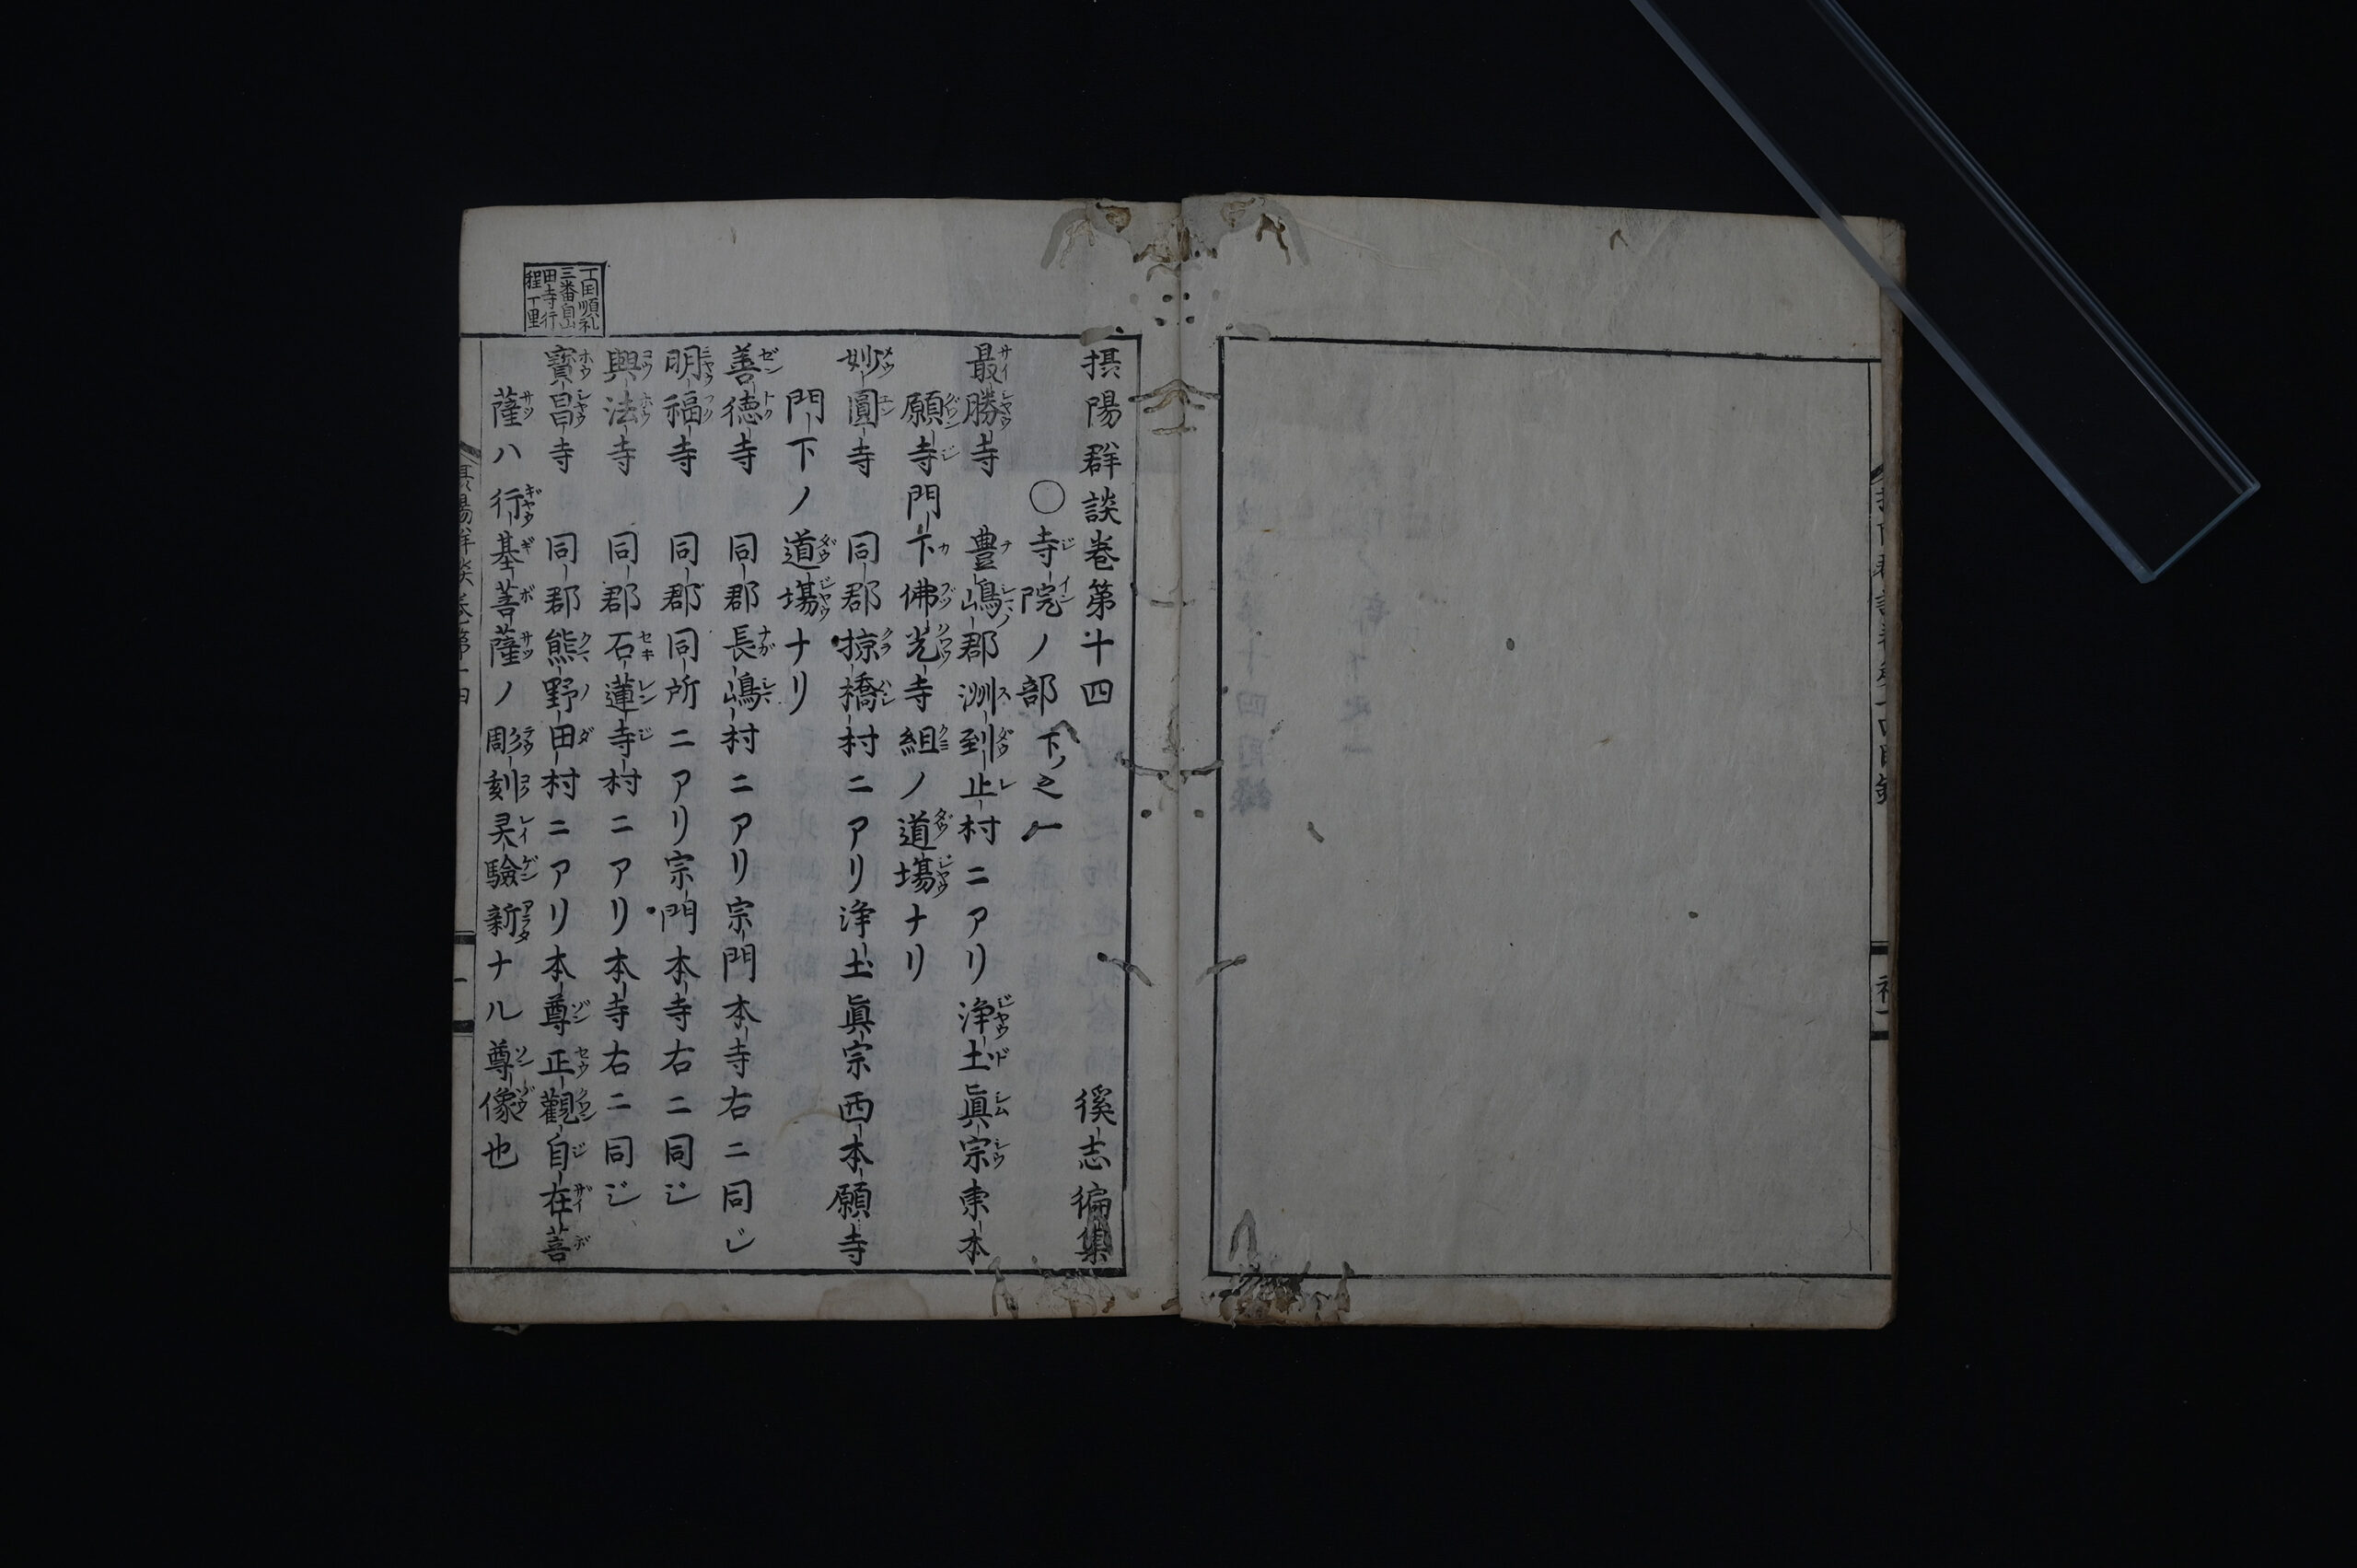 摂陽群談巻第十四　徯志徧集
〇寺院ノ部下之一
最勝寺　豊嶋郡洲到止村ニアリ浄土眞宗東本
願寺門下佛光寺組ノ道場ナリ
妙圓寺　同郡掠橋村ニアリ浄土眞宗西本願寺
門下ノ道場ナリ
善徳寺　同郡長嶋村ニアリ宗門本寺右ニ同ジ
明福寺　同郡同所ニアリ宗門本寺右ニ同ジ
興法寺　同郡石蓮寺村ニアリ本寺右ニ同ジ
寳昌寺　同郡熊野田村ニアリ本尊正觀自在菩
薩ハ行基菩薩ノ彫刻灵驗新ナル尊像也